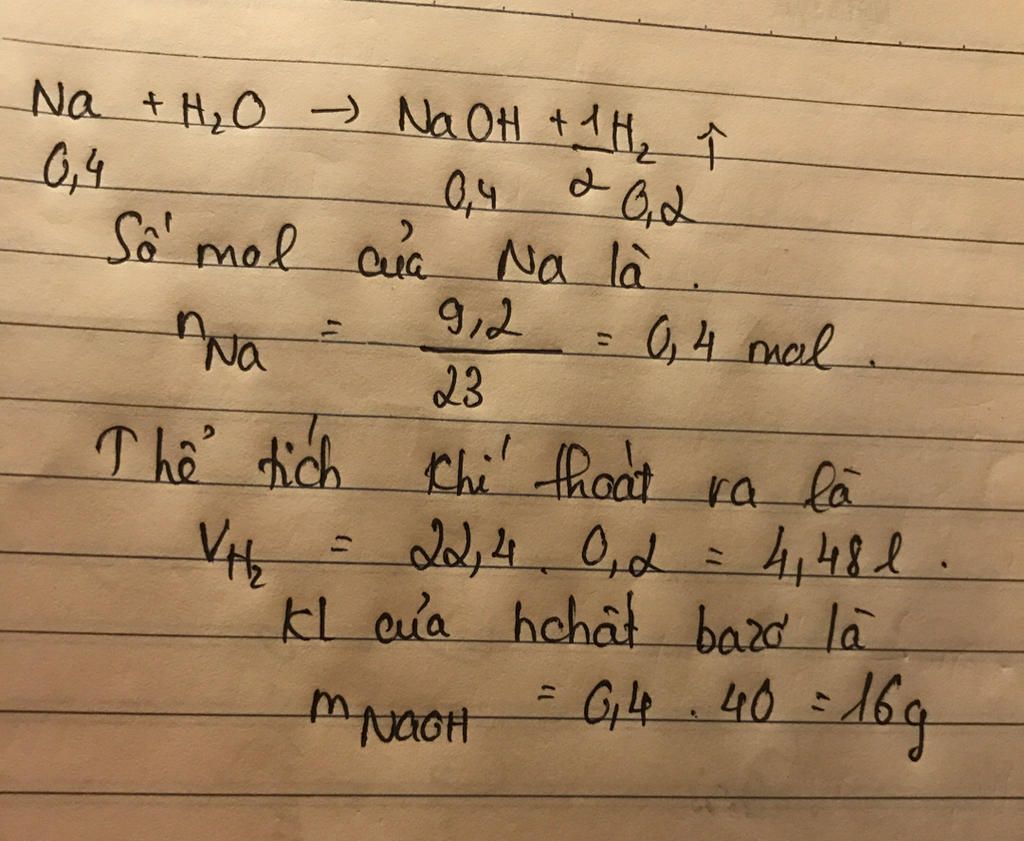 Na + H₂O → NaOH + 1/2 H₂ ↑
0,4 0,4 0,2
Số mol của Na là.
nNa = 9,2/23 = 0,4 mol.
Thể tích khí thoát ra là
VH₂ = 22,4 . 0,2 = 4,48 l.
Kl của hchất bazơ là
mNaOH = 0,4 . 40 = 16g